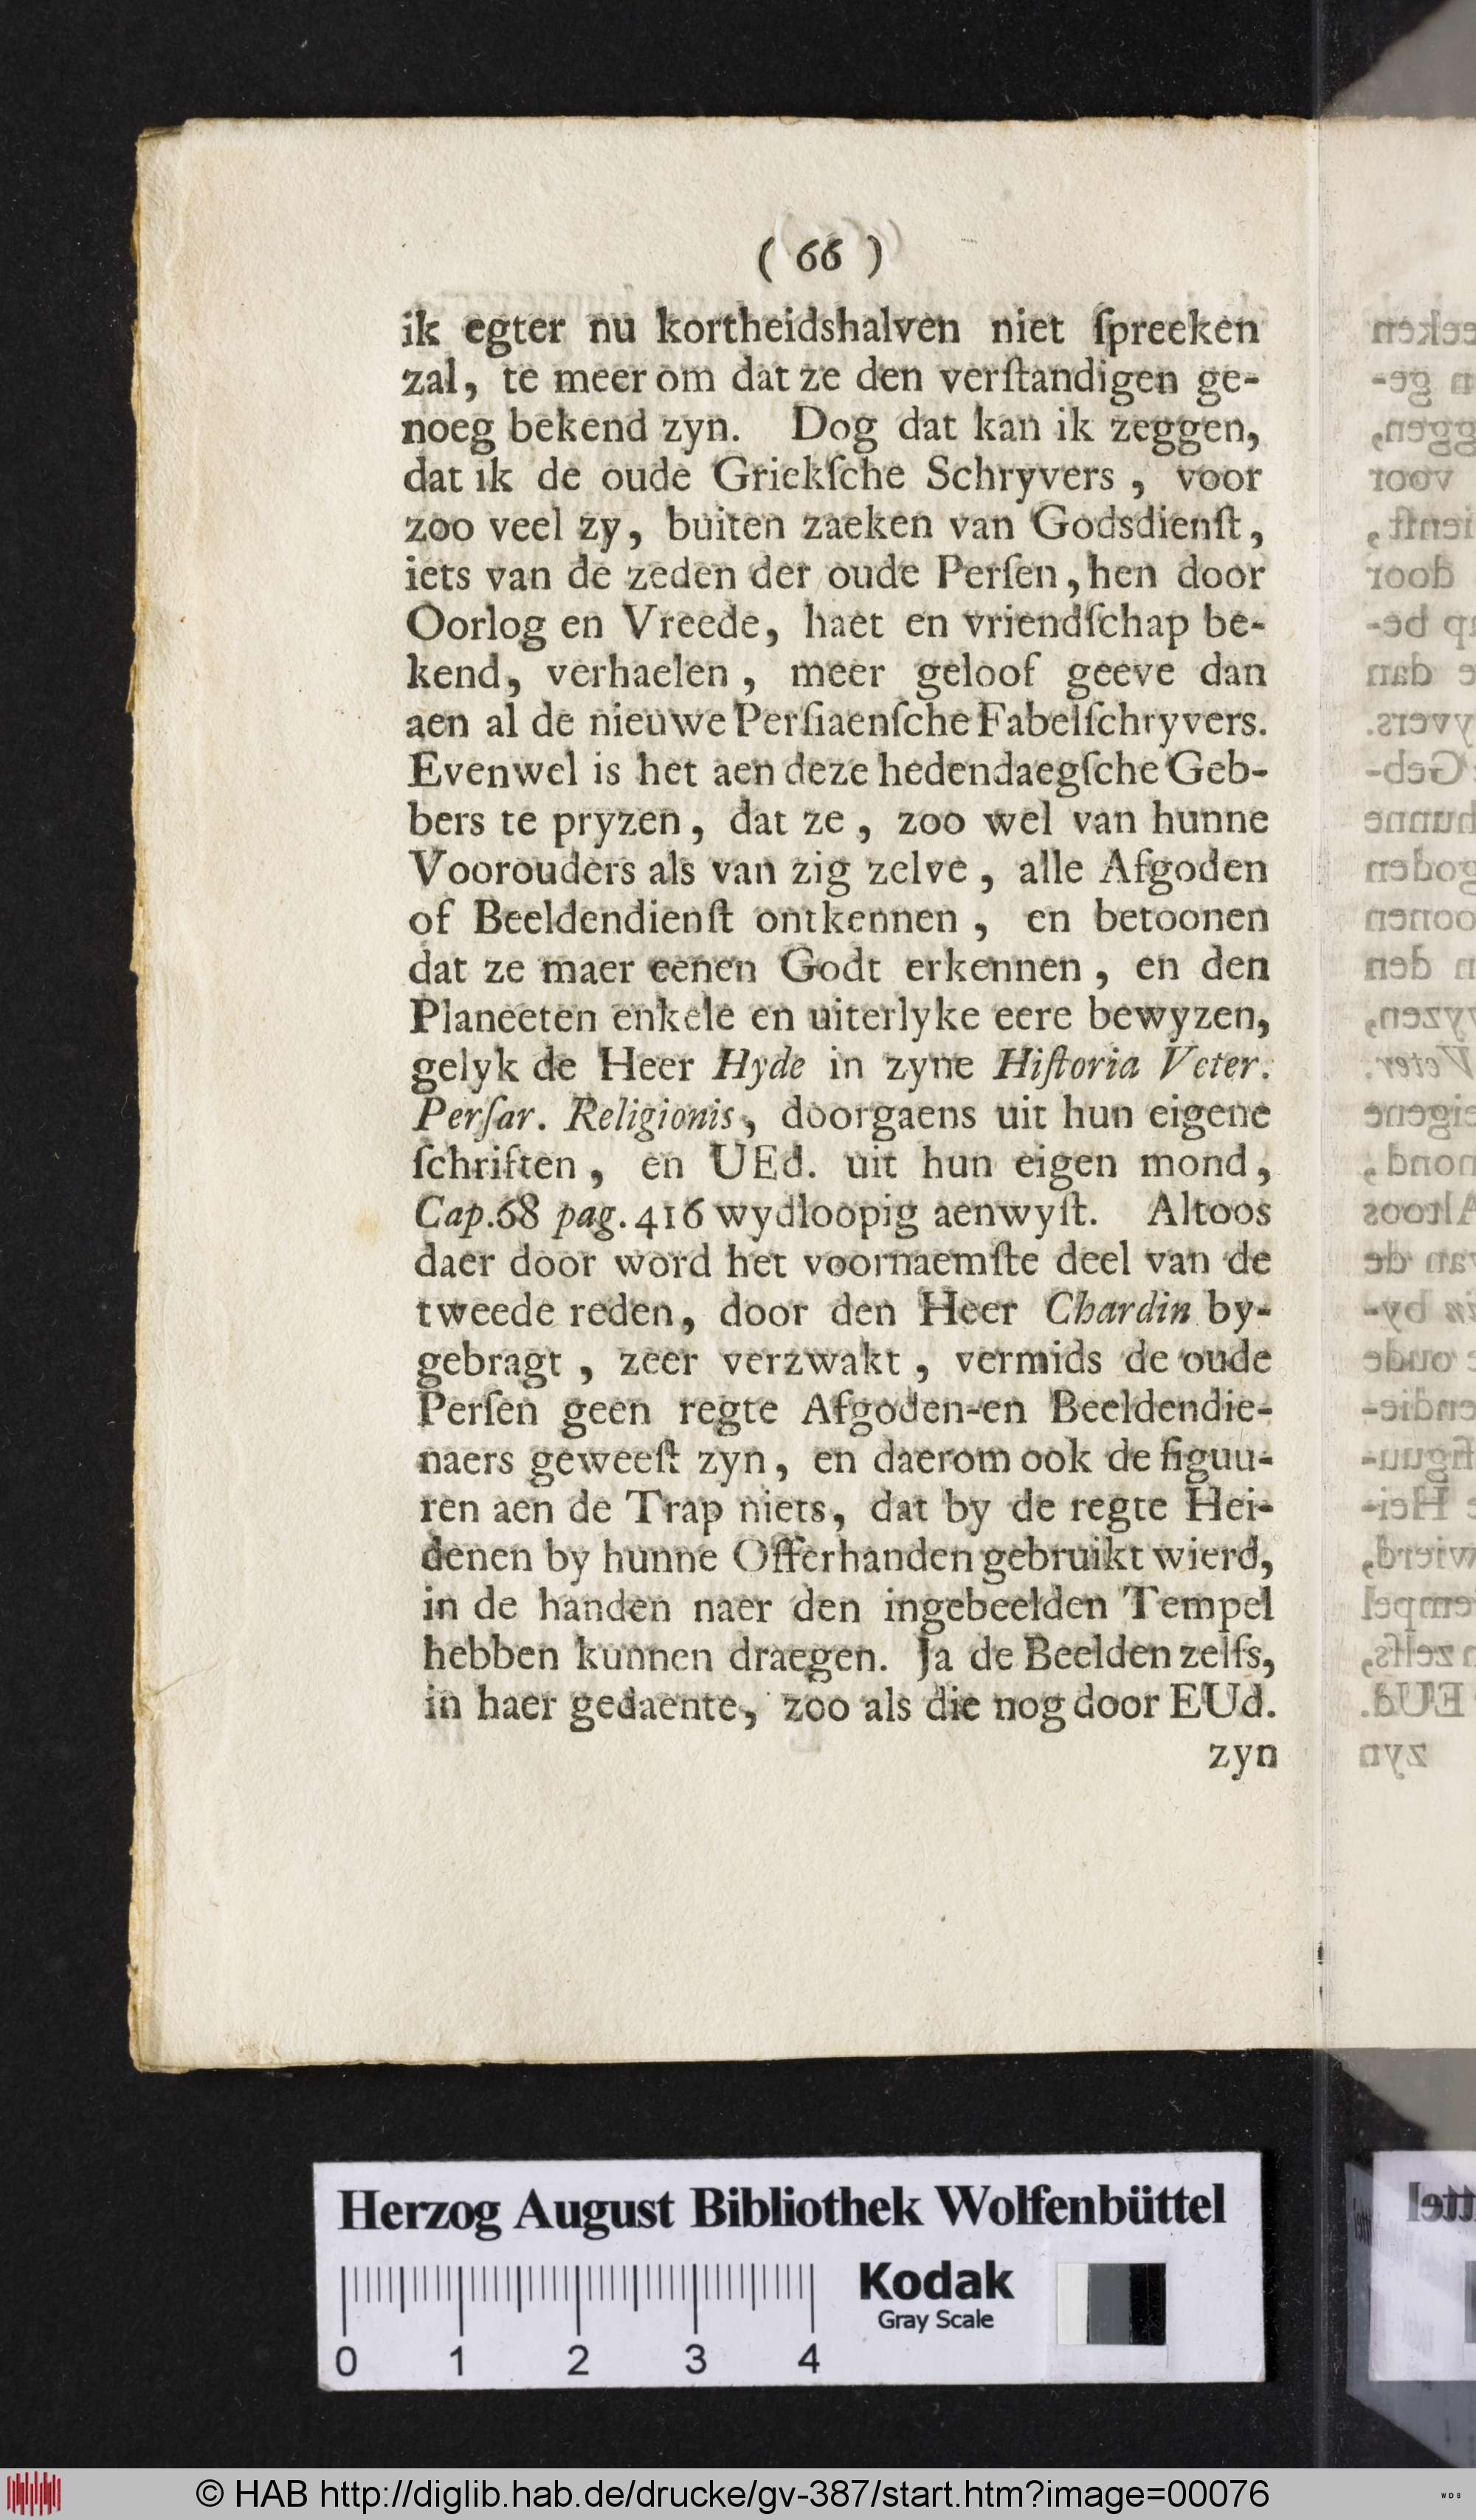 ( 66 )
ik egter nu kortheidshalven niet ſpreeken
zal, te meer om dat ze den verſtandigen ge-
noeg bekend zyn. Dog dat kan ik zeggen,
dat ik de oude Griekſche Schryvers , voor
zoo veel zy, buiten zaeken van Godsdienſt,
iets van de zeden der oude Perſen, hen door
Oorlog en Vreede, haet en vriendſchap be-
kend, verhaelen , meer geloof geeve dan
aen al de nieuwe Perſiaenſche Fabelſchryvers.
Evenwel is het aen deze hedendaegſche Geb-
bers te pryzen, dat ze , zoo wel van hunne
Voorouders als van zig zelve , alle Afgoden
of Beeldendienſt ontkennen , en betoonen
dat ze maer eenen Godt erkennen , en den
Planeeten enkele en uiterlyke eere bewyzen,
gelyk de Heer Hyde in zyne Hiſtoria Veter.
Perſar. Religionis, doorgaens uit hun eigene
ſchriften , en UEd. uit hun eigen mond,
Cap. 68 pag. 416 wydloopig aenwyſt. Altoos
daer door word het voornaemſte deel van de
tweede reden, door den Heer Chardin by-
gebragt , zeer verzwakt , vermids de oude
Perſen geen regte Afgoden-en Beeldendie-
naers geweeſt zyn, en daerom ook de figuu-
ren aen de Trap niets, dat by de regte Hei-
denen by hunne Offerhanden gebruikt wierd,
in de handen naer den ingebeelden Tempel
hebben kunnen draegen. Ja de Beelden zelfs,
in haer gedaente, zoo als die nog door EUd.
zyn
Herzog August Bibliothek Wolfenbüttel
Kodak
Gray Scale
0 1 2 3 4
© HAB http://diglib.hab.de/drucke/gv-387/start.htm?image=00076
WDB